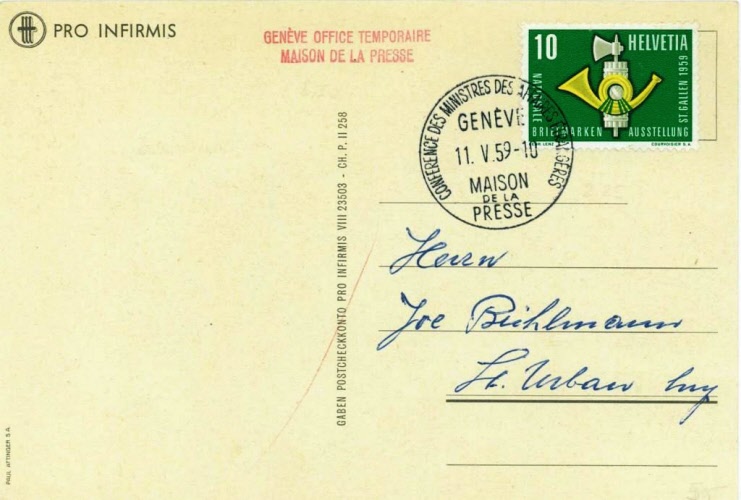 PRO INFIRMIS
GENÈVE OFFICE TEMPORAIRE
MAISON DE LA PRESSE
10 HELVETIA
NATIONALE
BRIEFMARKEN AUSSTELLUNG
ST. GALLEN 1959
COURVOISIER S.A.
CONFERENCE DES MINISTRES DES AFFAIRES ETRANGERES
GENÈVE
11. V. 59-10
MAISON
DE LA
PRESSE
GABEN POSTCHECKKONTO PRO INFIRMIS VIII 23503 - CH. P. II 258
Herrn
Joe Bühlmann
St. Urban
PAUL ATTINGER S.A.